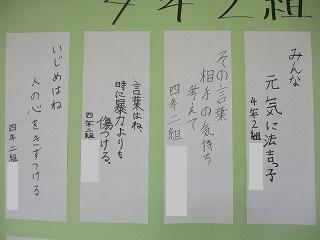 4年2組
みんな
元気に法吉っ子
4年2組
その言葉
相手の気持ち
考えて
四年二組
言葉はね、
時に暴力よりも
傷つける。
四年二組
いじめはね
人の心をきずつける
四年二組